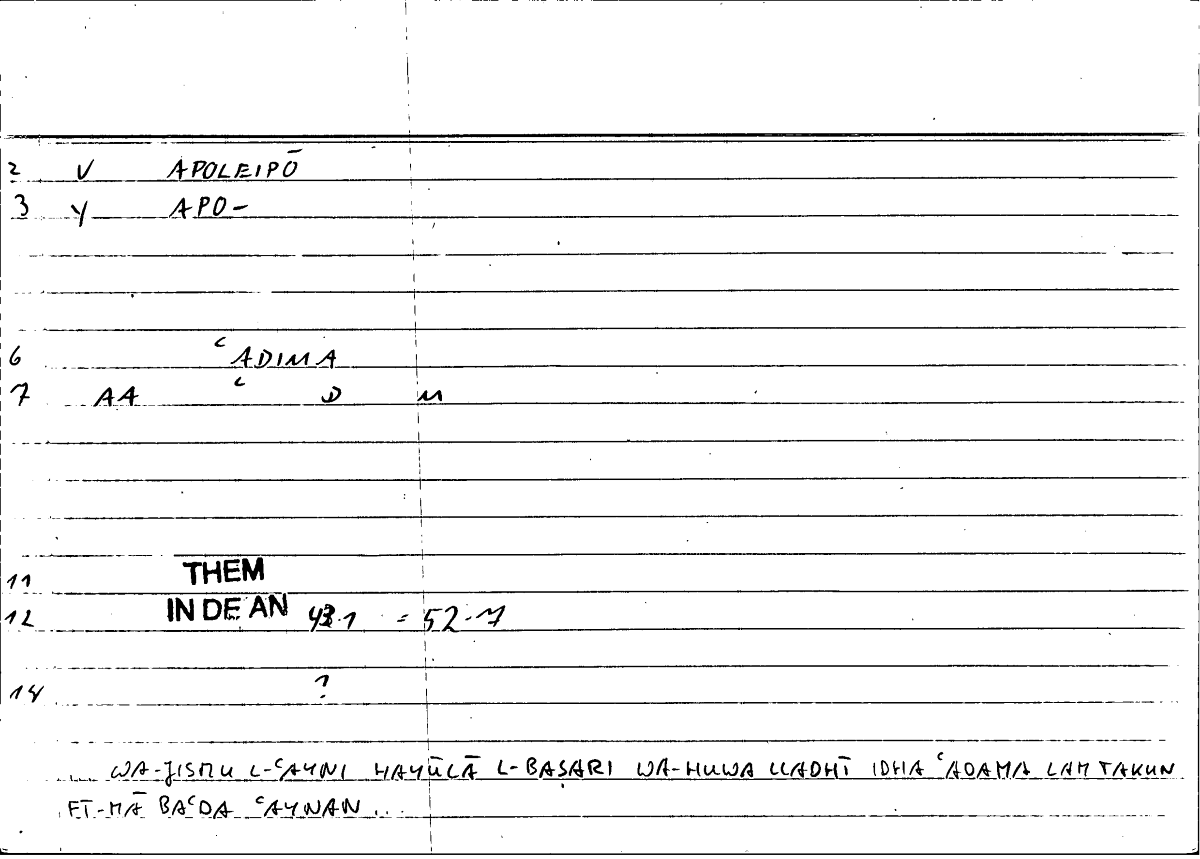 2 V APOLEIPŌ
3 Y APO-
6 ʿADIMA
7 AA ʿ D M
11 THEM
12 IN DE AN 43.1 = 52.7
14 ?
... WA-JISMU L-ʿAYNI HAYŪLĀ L-BASARI WA-HUWA LLADHĪ IDHA ʿADAMA LAM TAKUN
FĪ-MĀ BAʿDA ʿAYNAN ...